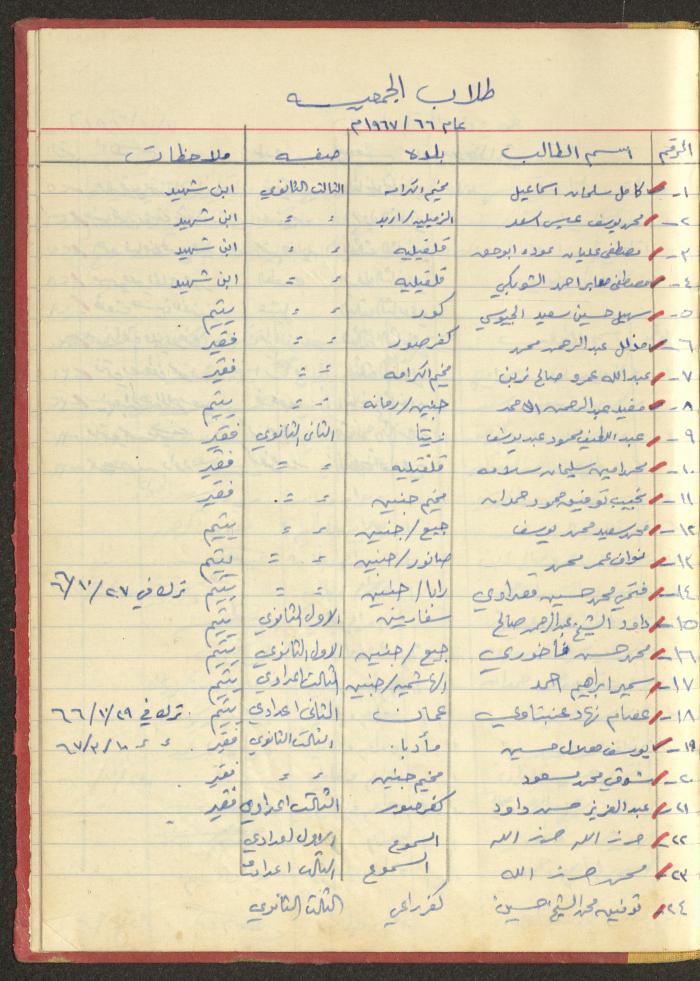 طلاب الجمعيه
عام ٦٦ / ١٩٦٧م
الرقم اسم الطالب بلده صفه ملاحظات
١- كامل سلمان اسماعيل مخيم الكرامه الثالث الثانوي ابن شهيد
٢- محمد يوسف عيسى اسعد /اربد = = ابن شهيد
٣- مصطفى عليان عوده قلقيليه = = ابن شهيد
٤- مصطفى صابر احمد الشوبكي قلقيليه = = ابن شهيد
٥- سهيل حسين سعيد الجيوسي كور = = يتيم
٦- عبد الرحمن محمد كفرصور = = فقير
٧- عبدالله عمرو صالح مخيم الكرامه = = فقير
٨- مفيد عبد الرحمن جنين/رمانه = = يتيم
٩- عبد اللطيف محمود عبد يوسف زيتا الثاني الثانوي فقير
١٠- محمد امين سليمان سلامه قلقيليه = = فقير
١١- نجيب توفيق حمدان مخيم جنين = = فقير
١٢- محمد سعيد محمد يوسف جبع/جنين = = يتيم
١٣- نواف عمر محمد صانور/جنين = = يتيم
١٤- فتحي محمد حسين رابا/جنين = = يتيم ترك في ٢٧/١٠/٦٦
١٥- داود الشيخ عبد الرحمن صالح سفارين الاول الثانوي يتيم
١٦- محمد حسن فاخوري جبع/جنين الاول الثانوي يتيم
١٧- سمير ابراهيم احمد الهاشميه/جنين الثالث اعدادي يتيم
١٨- عصام نهاد عنبتاوي عمان الثاني اعدادي يتيم ترك في ٢٩/١/٦٦
١٩- يوسف حسين مأدبا الثالث الثانوي فقير = = ١٠/٣/٦٧
٢٠- شوقي محمد مسعود مخيم جنين = = فقير
٢١- عبد العزيز حسن داود كفرصور الثالث اعدادي فقير
٢٢- حرز الله حرز الله السموع الاول اعدادي
٢٣- حرز الله السموع الثالث اعدادي
٢٤- توفيق محمد الشيخ حسين كفرراعي الثالث الثانوي